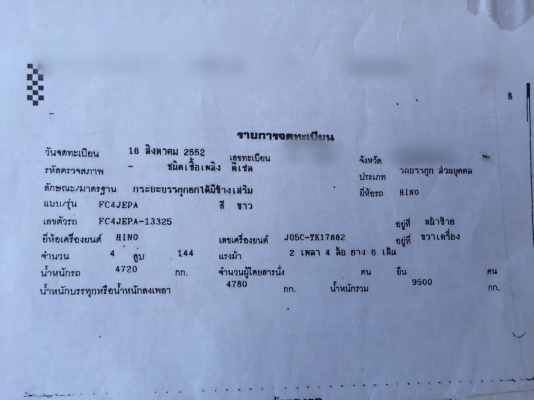 8
รายการจดทะเบียน
วันจดทะเบียน 18 สิงหาคม 2552 เลขทะเบียน จังหวัด
รหัสตรวจสภาพ - ชนิดเชื้อเพลิง ดีเซล ประเภท รถบรรทุก ส่วนบุคคล
ลักษณะ/มาตรฐาน กระบะบรรทุกยกได้มีข้างเสริม ยี่ห้อรถ HINO
แบบ/รุ่น FC4JEPA สี ขาว
เลขตัวรถ FC4JEPA-13325 อยู่ที่ หน้าซ้าย
ยี่ห้อเครื่องยนต์ HINO เลขเครื่องยนต์ J05C-TK17882 อยู่ที่ ขวาเครื่อง
จำนวน 4 สูบ 144 แรงม้า 2 เพลา 4 ล้อ ยาง 6 เส้น
น้ำหนักรถ 4720 กก. จำนวนผู้โดยสารนั่ง คน ยืน คน
น้ำหนักบรรทุกหรือน้ำหนักลงเพลา 4780 กก. น้ำหนักรวม 9500 กก.